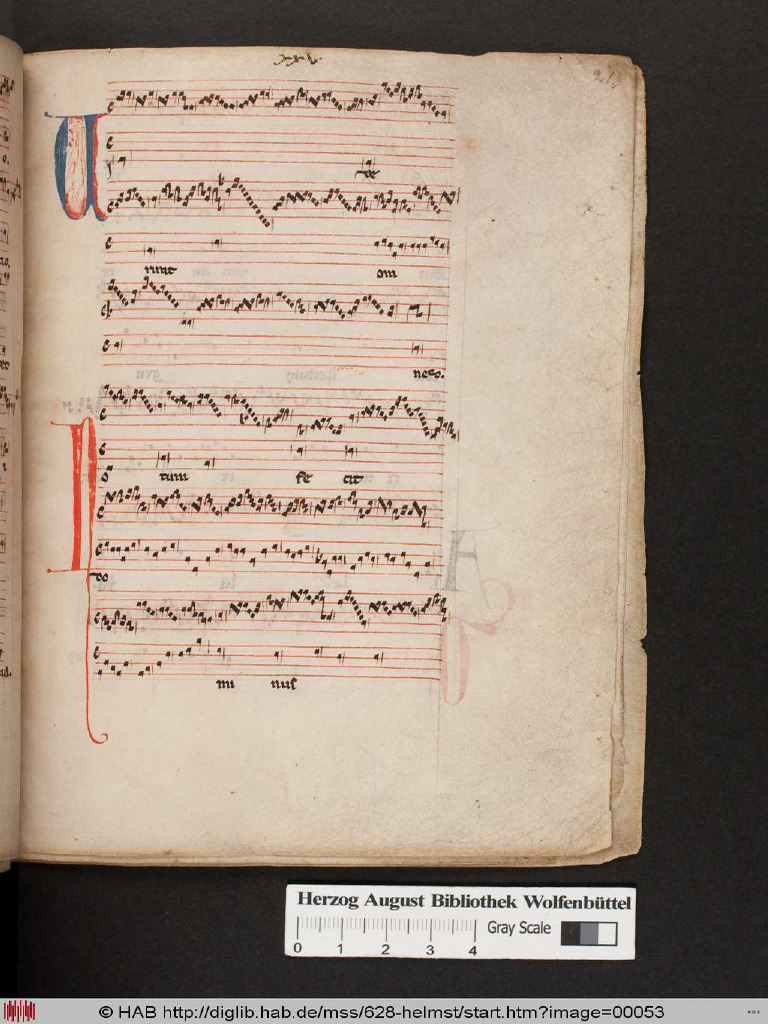 xxi.
21
V
de
runt
om
nes.
N
o
tum
fe
cit
do
mi
nus
Herzog August Bibliothek Wolfenbüttel
0 1 2 3 4
Gray Scale
© HAB http://diglib.hab.de/mss/628-helmst/start.htm?image=00053